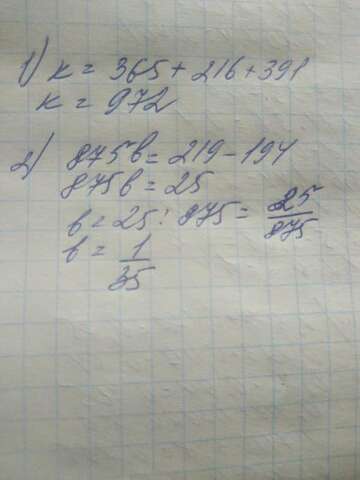 1) к = 365 + 216 + 391
к = 972
2) 875в = 219 - 194
875в = 25
в = 25 : 875 = 25/875
в = 1/35